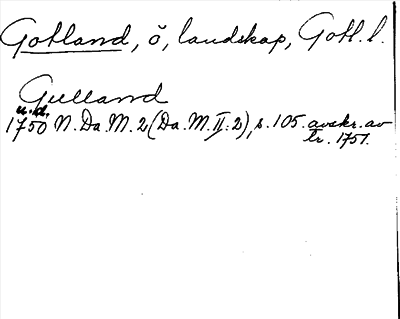 Gotland, ö, landskap, Gotl. l.
Gulland
u.d.
1750 N. Da. M. 2 (Da. M. II: 2), s. 105. avskr. av
br. 1751.